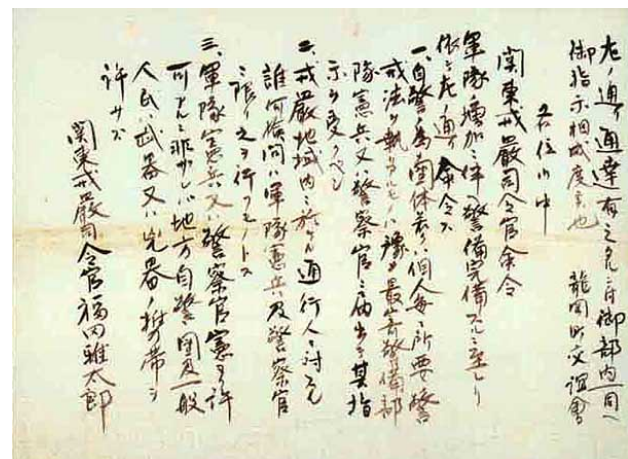 左ノ通リ通達有之候ニ付御部内一同ヘ
御指示相成度候也
龍岡町交誼會
各位御中
関東戒嚴司令官命令
軍隊増加ニ伴ヒ警備完備スルニ至レリ
依テ左ノ通リ命令ス
一、自警ノ為團体若クハ個人毎ニ所要ノ警
戒法ヲ執リタルモノハ豫メ最寄警備部
隊憲兵又ハ警察官ニ届出テ其指
示ヲ受クベシ
二、戒嚴地域内ニ於ケル通行人ニ対スル
誰何檢問ハ軍隊憲兵及警察官
ニ限リ之ヲ行フモノトス
三、軍隊憲兵又ハ警察官憲ヨリ許
可アルニ非サレハ地方自警團及一般
人民ハ武器又ハ兇器ノ携帯ヲ
許サズ
関東戒嚴司令官福田雅太郎